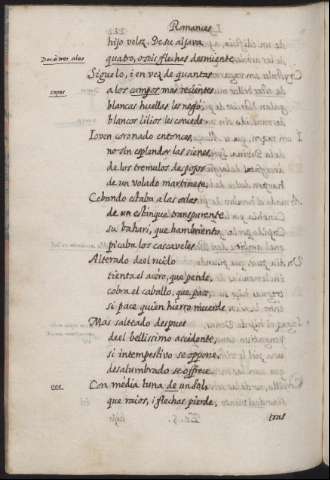 Romances
hijo veloz. De su aljava
Dos ò tres alas
quatro, o seis flechas desmiente.
Siguelo, i en vez de quantas
a los campos mas recientes
blancas huellas les negó,
blancos lilios les concede.
Ioven coronado entonces,
no sin esplendor las sienes
de los tremulos despojos
de un volado martinete,
Cebando estaba a las orlas
de un estanque transparente
su bahari, que hambriento
picaba los cascaveles.
Alterado del ruido
tienta el acero, que pende,
cobra el caballo, que pace,
si pace quien hierro muerde.
Mas salteado despues
del bellissimo accidente,
si intempestivo se oppone,
desalumbrado se offrece.
Con media luna de un sol,
que raios, i flechas pierde,
tras